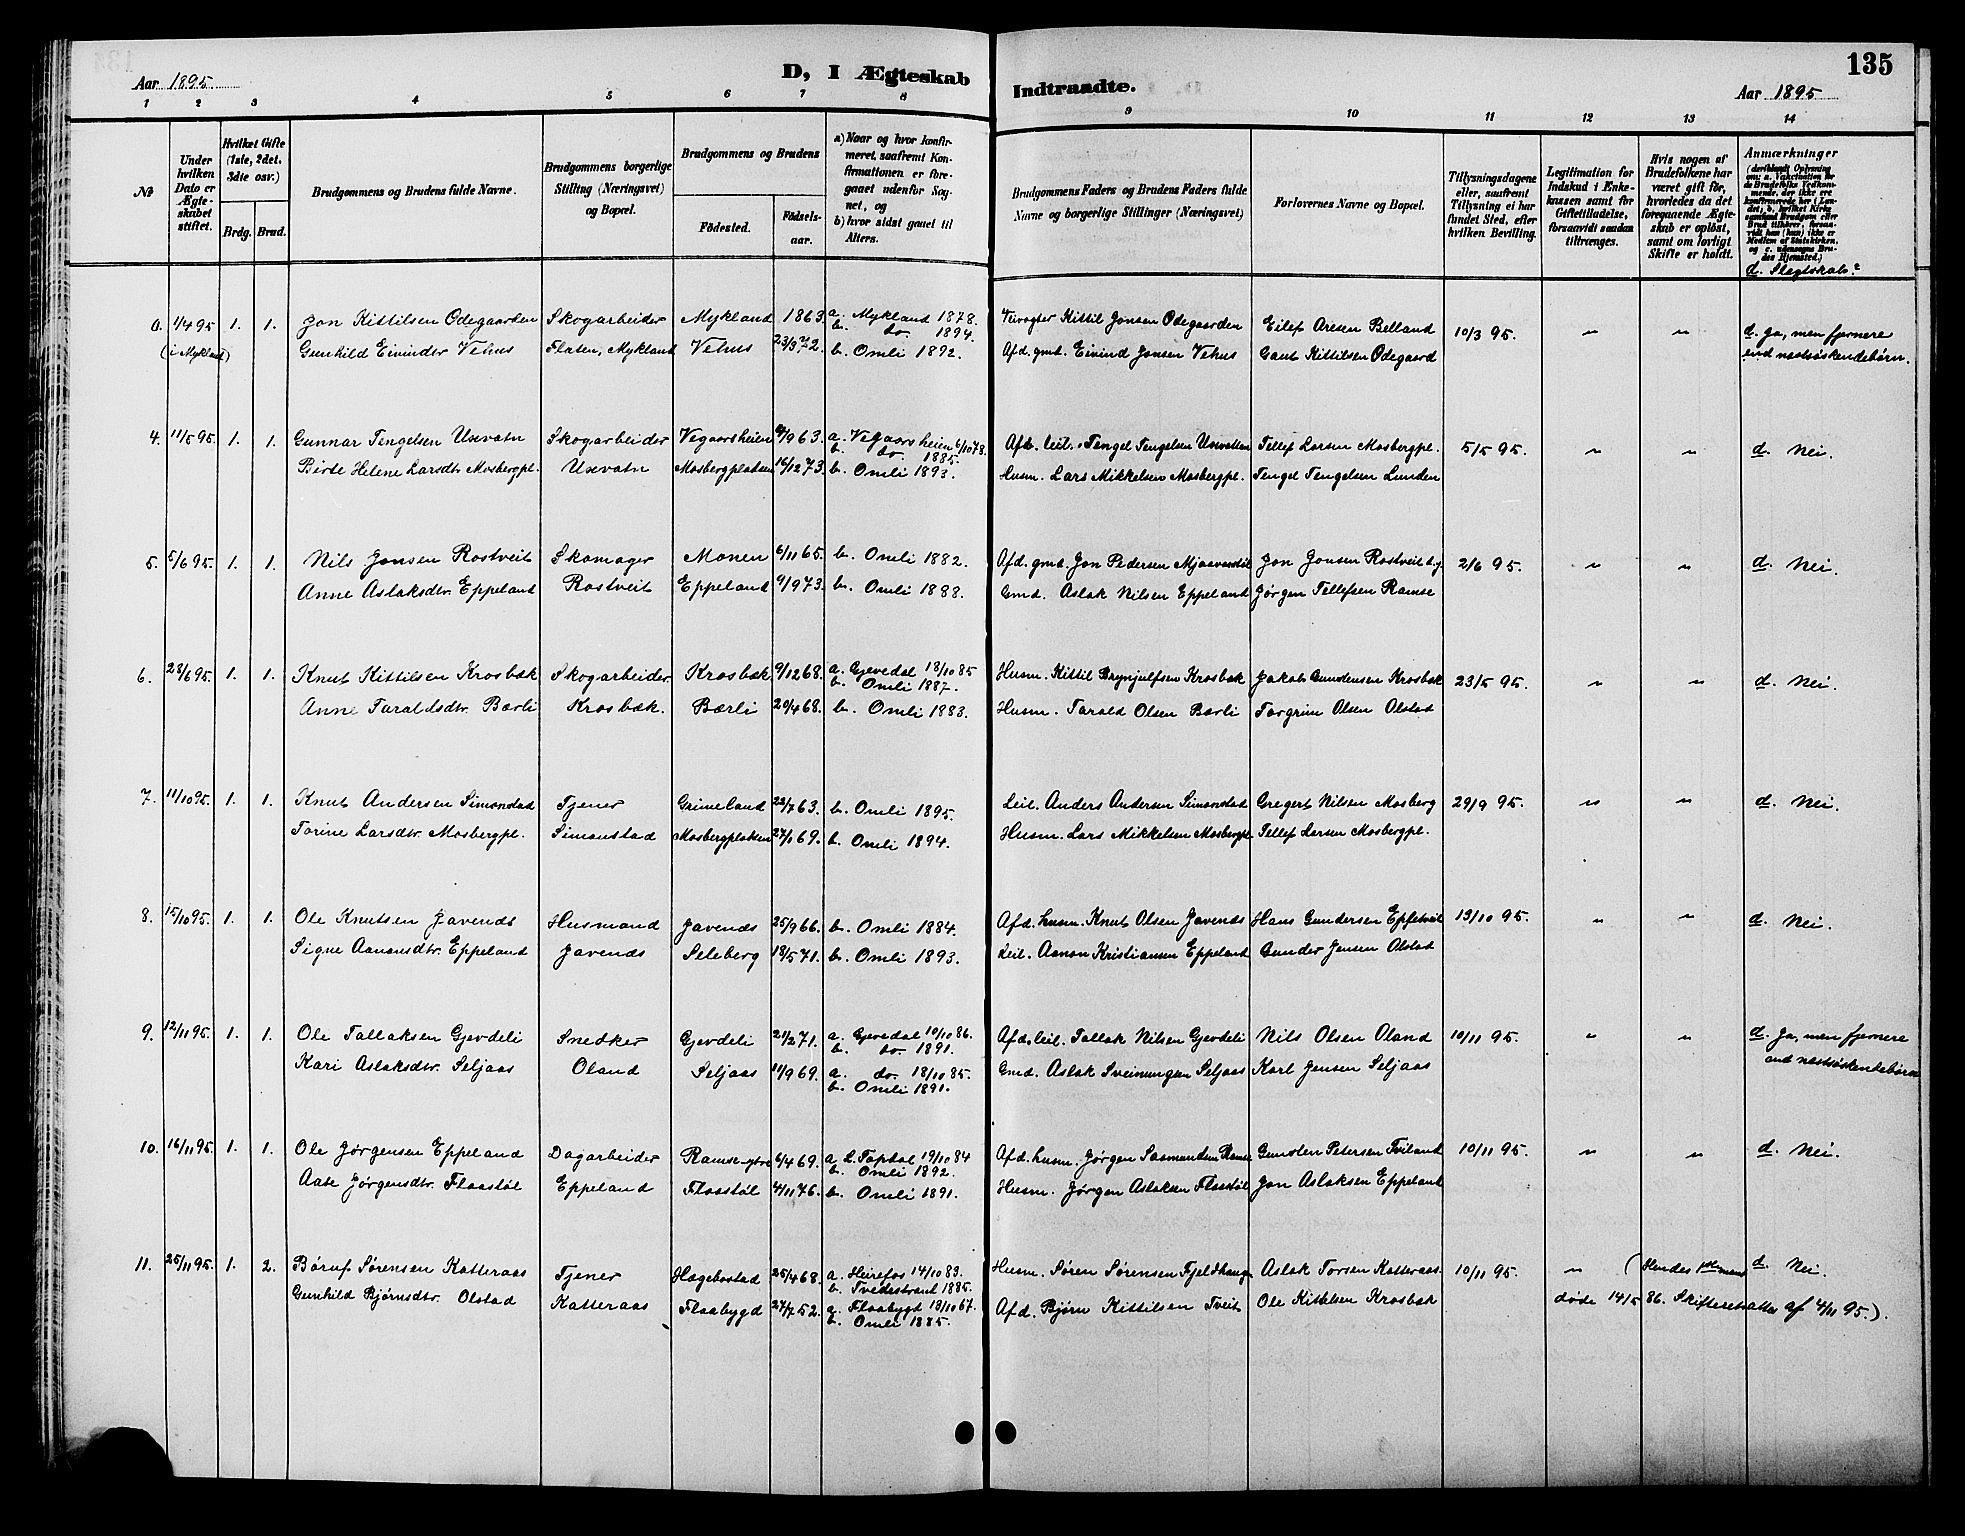 Aar 1895
D, I Ægteskab
Indtraadte.
135
Aar 1895
1 2 3 4 5 6 7 8 9 10 11 12 13 14
No
Under hvilken Dato er Ægteskabet stiftet.
Hvilket Gifte (1ste, 2det, 3die osv.)
Brdg. Brud.
Brudgommens og Brudens fulde Navne.
Brudgommens borgerlige Stilling (Næringsvei) og Bopæl.
Brudgommens og Brudens
Födested.
Födsels-aar.
a) Naar og hvor konfirmeret, saafremt Konfirmationen er foregaaet udenfor Sognet, og
b) hvor sidst gaaet til Alters.
Brudgommens Faders og Brudens Faders fulde Navne og borgerlige Stillinger (Næringsvei)
Forlovernes Navne og Bopæl.
Tillysningsdagene eller, saafremt Tillysning ei har fundet Sted, efter hvilken Bevilling.
Legitimation for Indskud i Enkekassen samt for Giftetilladelse, forsaavidt saadan tiltrænges.
Hvis nogen af Brudefolkene har været gift før, hvorledes da det foregaaende Ægteskab er opløst, samt om lovligt Skifte er holdt.
Anmærkninger
d. Slegtskab?
0. 1/4 95 1. 1. Jon Kittilsen Odegaarden Skogarbeider Mykland 1863. a. Mykland 1878. b. do. 1894. Kittil Jonsen Odegaarden Eilef Aresen Belland 10/3 95. " " d. Ja, men fjernere
(i Mykland) Gunhild Eivindsdr Vehus Flaten, Mykland Vehus 23/3 72. b. Omli 1892. Afd. gmd. Eivind Jonsen Vehus Gaut Kittilsen Odegaard end næstsøskendebørn.
4. 11/5 95. 1. 1. Gunnar Tengelsen Uxvatn Skogarbeider Vegaarsheien 9/9 63. a. Vegaarsheien 6/10 78. b. do. 1885. Afd. leil. Tengel Tengelsen Uxvatten Tellef Larsen Mosbergpl. 5/5 95. " " d. Nei.
Birte Helene Larsdtr Mosbergpl. Uxvatn Mosbergpladsen 16/12 73. b. Omli 1893. Husm. Lars Mikkelsen Mosbergpl. Tengel Tengelsen Lunden
5. 5/6 95. 1. 1. Nils Jonsen Rostveit Skomager Monen 6/11 65. b. Omli 1882. Afd. gmd. Jon Pedersen Jon Jonsen Rostveit d.y. 2/6 95. " " d. Nei.
Anne Aslaksdtr. Eppeland Rostveit Eppeland 9/9 73. b. Omli 1888. Gmd. Aslak Nilsen Eppeland Jørgen Tellefsen Ramse
6. 28/6 95. 1. 1. Knut Kittilsen Krosbæk Skogarbeider Krosbæk 9/12 68. a. Gjevedal 18/10 85 b. Omli 1887. Husm. Kittil Brynjulfsen Krosbæk Jakob Gundersen Krosbæk 23/5 95. " " d. Nei.
Anne Taraldsdtr. Bærli Krosbæk. Bærli 20/4 68. b. Omli 1883. Husm. Tarald Olsen Bærli Torgrim Olsen Olstad
7. 11/10 95. 1. 1. Knut Andersen Simonstad Tjener Grimeland 22/7 63. b. Omli 1895. Leil. Anders Andersen Simonstad Gregert Nilsen Mosberg 29/9 95. " " d. Nei.
Torine Larsdtr. Mosbergpl. Simonstad Mosbergpladsen 27/1 69. b. Omli 1894. Husm. Lars Mikkelsen Mosbergpl. Tellef Larsen Mosbergpl.
8. 15/10 95. 1. 1. Ole Knutsen Javends Husmand Javends 25/9 66. b. Omli 1884. Afd. husm. Knut Olsen Javends Hans Gundersen Epfetveit 13/10 95. " " d. Nei.
Signe Aanonsdtr. Eppeland Javends Seleberg 18/5 71. b. Omli 1893. Leil. Aanon Kristiansen Eppeland Gunder Jensen Olstad
9. 12/11 95. 1. 1. Ole Tallaksen Gjevdeli Snedker Gjevdeli 21/2 71. a. Gjevedal 10/10 86. b. do. 1891. Afd. leil. Tallak Nilsen Gjevdeli Nils Olsen Oland 10/11 95. " " d. Ja, men fjernere
Kari Aslaksdtr. Seljaas Oland Seljaas 11/9 69. a. do. 18/10 85. b. Omli 1891. Gmd. Aslak Sveinungsen Seljaas Karl Jensen Seljaas end næstsøskendebørn
10. 16/11 95. 1. 1. Ole Jørgensen Eppeland Dagarbeider Ramse-ytre 6/4 69. a. Ö. Topdal 19/10 84 b. Omli 1892. Afd. husm. Jørgen Ramse Gunsten Petersen Tviland 10/11 95. " " d. Nei.
Aase Jørgensdtr. Flaastøl Eppeland Flaastøl 4/11 76. b. Omli 1891. Husm. Jørgen Aslaksen Flaastøl Jon Aslaksen Eppeland
11. 25/11 95. 1. 2. Børuf Sørensen Katteraas Tjener Hægebostad 25/4 68. a. Heirefos 14/10 83. b. Tvedestrand 1895. Husm. Søren Sørensen Fjeldhaugen Aslak Torsen Katteraas. 10/11 95. " (Hendes 1ste mand d. Nei.
Gunhild Bjørnsdtr. Olstad Katteraas Flaabygd 27/7 52. a. Flaabygt 19/10 67. b. Omli 1885. Afd. Bjørn Kittilsen Tveit Ole Kittilsen Krosbæk døde 14/5 86. Skifteretsatter af 4/11 95.).